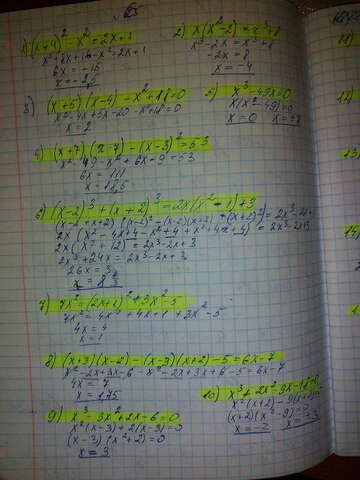 1) (x+4)² - x² = 2x+1
x² + 8x + 16 - x² - 2x + 1
6x = -15
2) x(x²-2) = x³+8
x³ - 2x = x³ + 8
-2x = 8
x = -4
3) (x+5)(x-4) - x² + 18 = 0
x² - 4x + 5x - 20 - x² + 18 = 0
x = 2
x³ - 49x = 0
x(x² - 49) = 0
x = 0
4) (x+7)(x-7) - (x-3)² = 53
x² - 49 - x² + 6x - 9 = 53
6x = 111
x = 18,5
6) (x-2)³ + (x+2)³ = 2x(x²-1)+3
2x(x²+12) = 2x³-2x+3
2x³ + 24x = 2x³ - 2x + 3
26x = 3
7) 7x² = (2x+1)² + 3x² - 5
7x² = 4x² + 4x + 1 + 3x² - 5
4x = 4
x = 1
8) (x+3)(x-2) - (x-3)(x+2) - 5 = 6x - 7
x² - 2x + 3x - 6 - x² - 2x + 3x + 6 - 5 = 6x - 7
4x = 7
x = 1,75
9) x³ - 3x² + 2x - 6 = 0
x²(x-3) + 2(x-3) = 0
(x-3)(x²+2) = 0
x = 3
10) x³ + 2x² - 9x - 18 = 0
x²(x+2) - 9(x+2) = 0
(x+2)(x²-9) = 0
x = -2